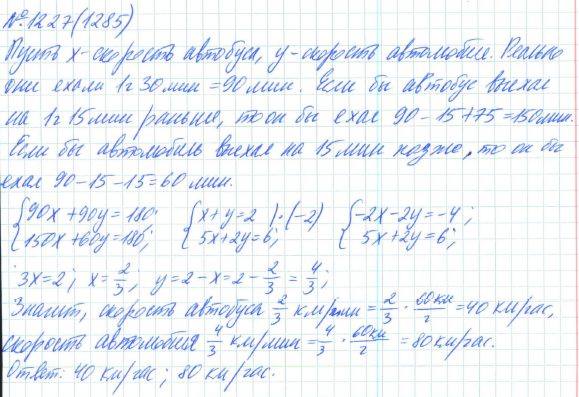 №1227(1285)
Пусть x-скорость автобуса, y-скорость автомобиля. Реально
они ехали 1ч 30 мин = 90 мин. Если бы автобус выехал
на 1ч 15 мин раньше, то он бы ехал 90-15+75=150 мин.
Если бы автомобиль выехал на 15 мин позже, то он бы
ехал 90-15-15=60 мин.
{90x+90y=180; {x+y=2 |·(-2) {-2x-2y=-4;
{150x+60y=180; {5x+2y=6; {5x+2y=6;
3x=2; x=2/3; y=2-x=2-2/3=4/3;
Значит, скорость автобуса 2/3 км/мин = 2/3 · 60км/ч = 40 км/час,
скорость автомобиля 4/3 км/мин = 4/3 · 60км/ч = 80 км/час.
Ответ: 40 км/час; 80 км/час.